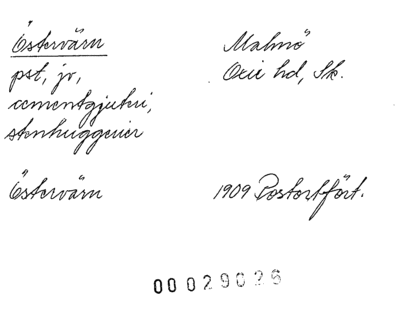 Östervärn Malmö
pst, jv, Oxie hd, Sk.
cementgjuteri,
stenhuggerier
Östervärn 1909 Postortfört.
00029026